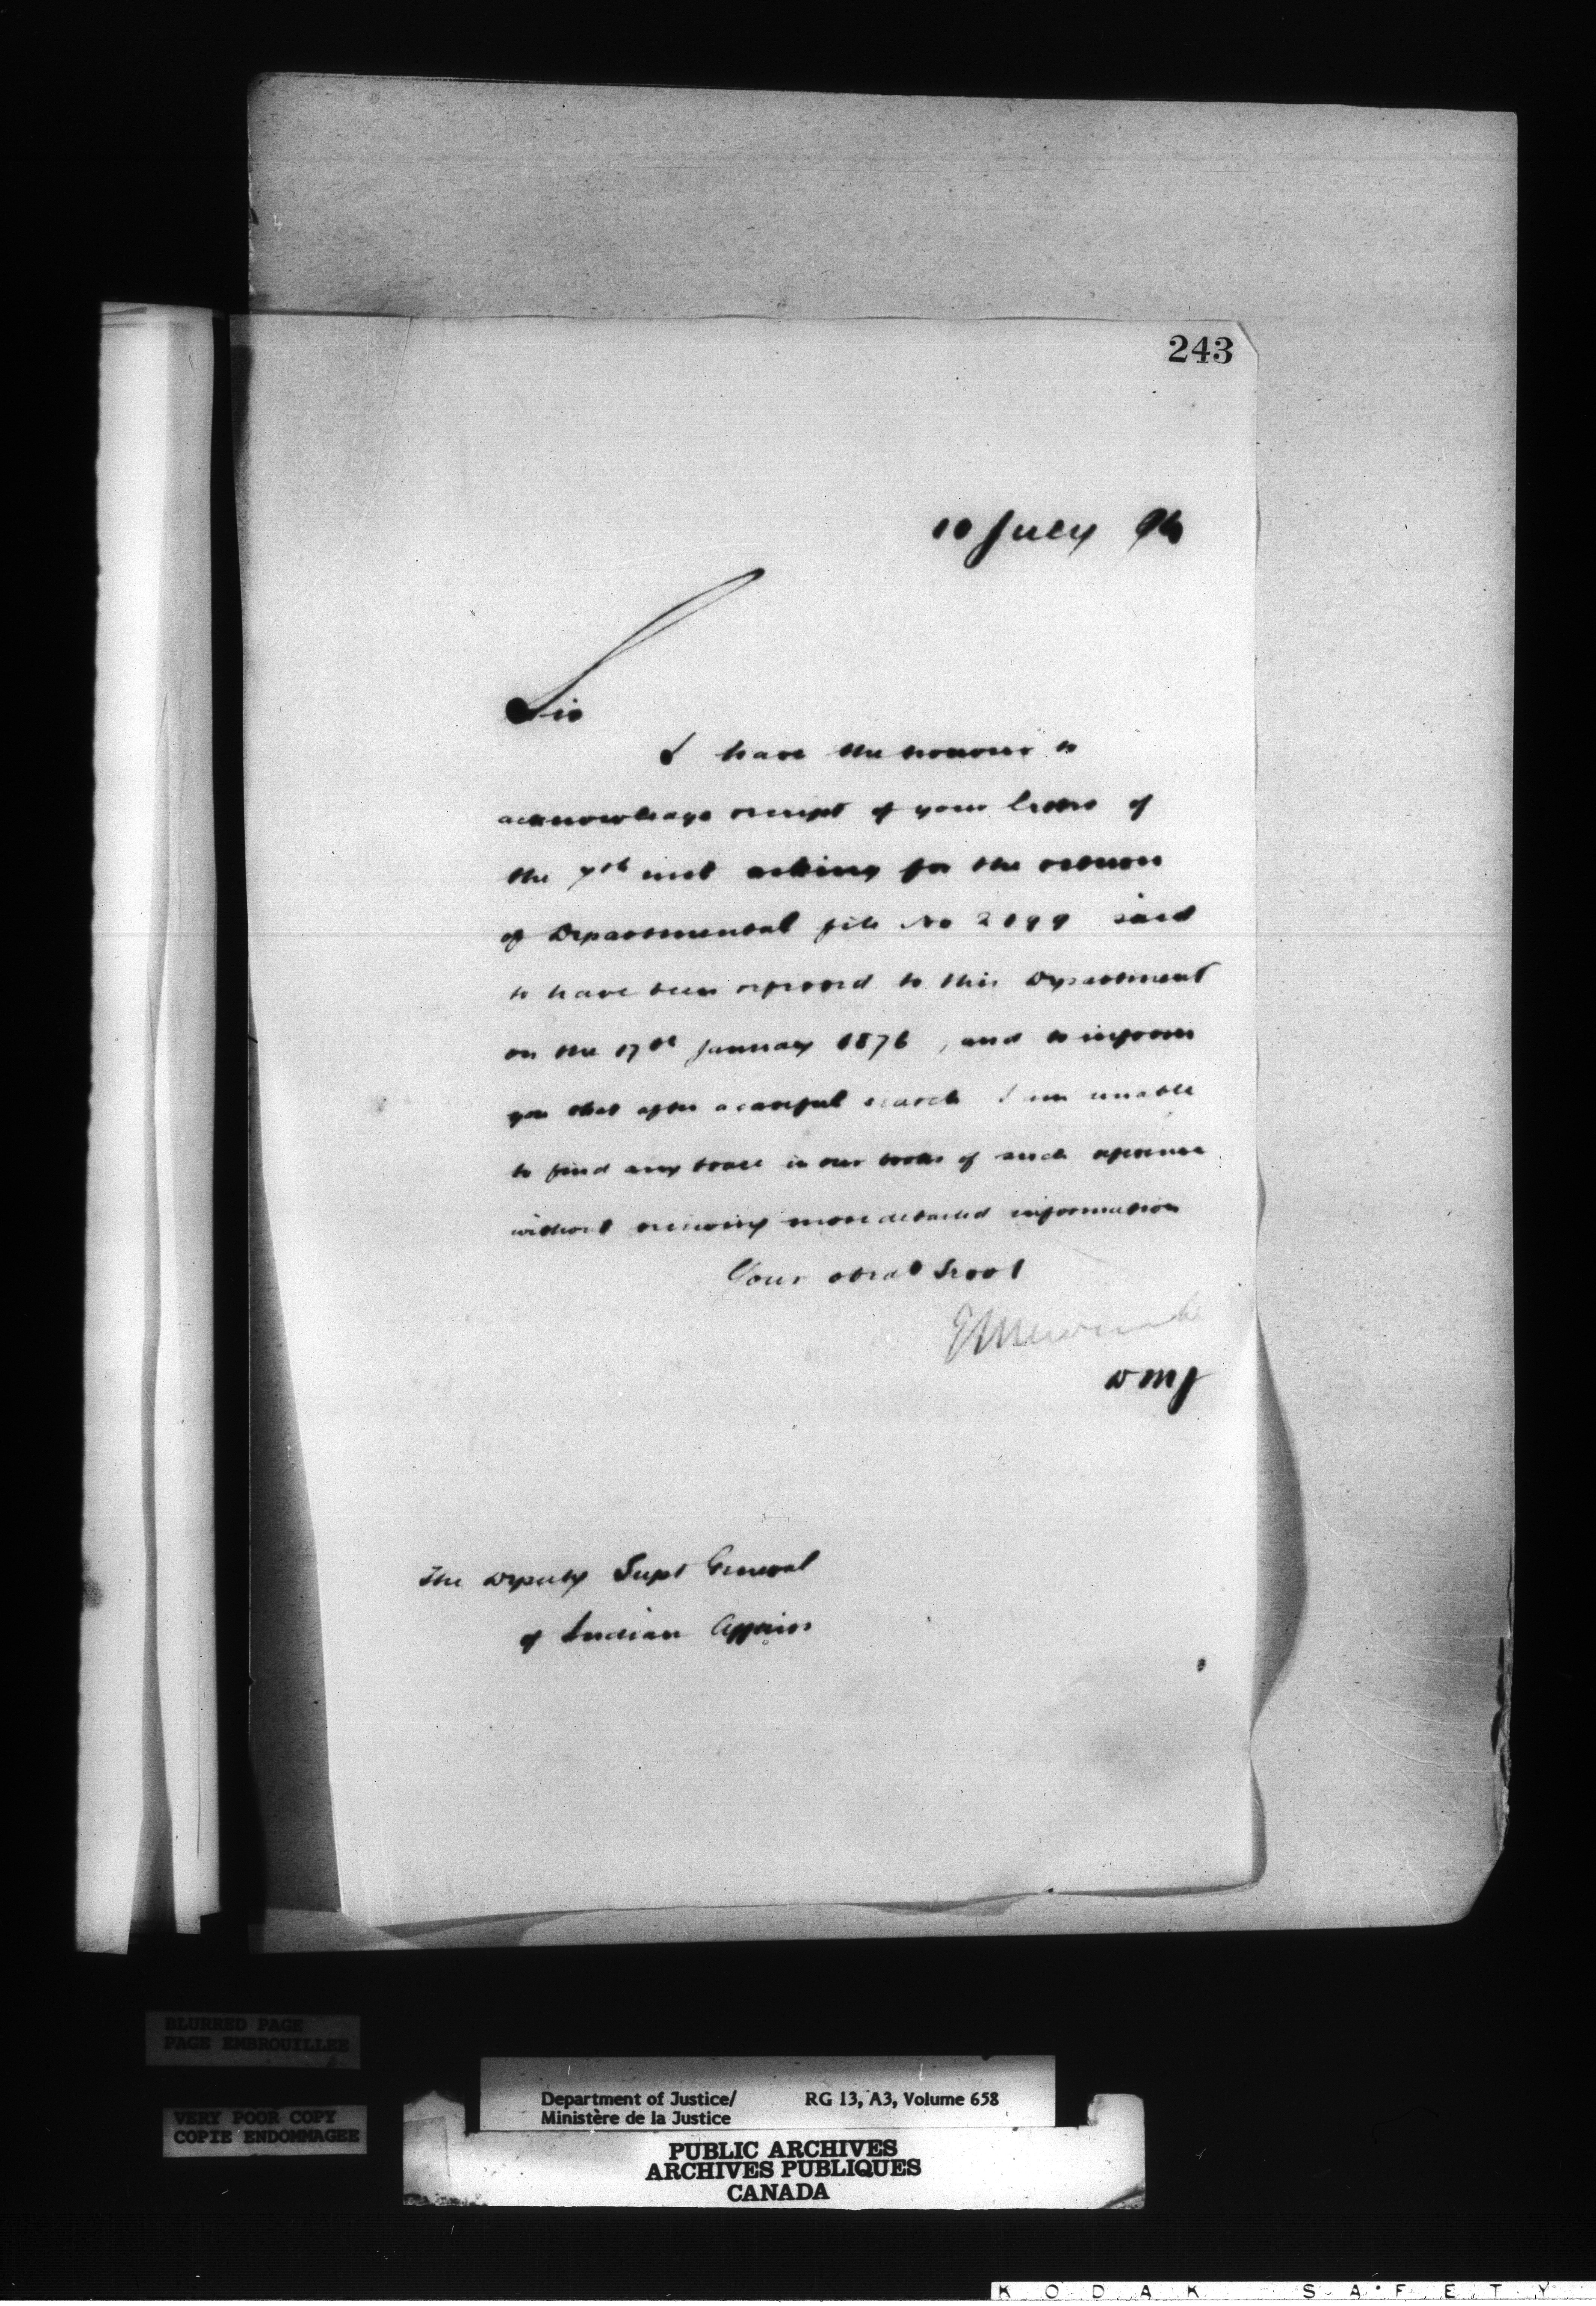 243
10 July 96
Sir
I have the honour to
acknowledge receipt of your letter of
the 7th inst asking for the return
of Departmental file No 2099 said
to have been referred to this Department
on the 17th January 1876, and to inform
you that after a careful search I am unable
to find any trace in our books of such reference
without receiving more detailed information
Your obedt Servt
E L Newcombe
D M J
The Deputy Supt General
of Indian Affairs
BLURRED PAGE
PAGE EMBROUILLEE
VERY POOR COPY
COPIE ENDOMMAGEE
Department of Justice/ RG 13, A3, Volume 658
Ministère de la Justice
PUBLIC ARCHIVES
ARCHIVES PUBLIQUES
CANADA
KODAK SAFETY